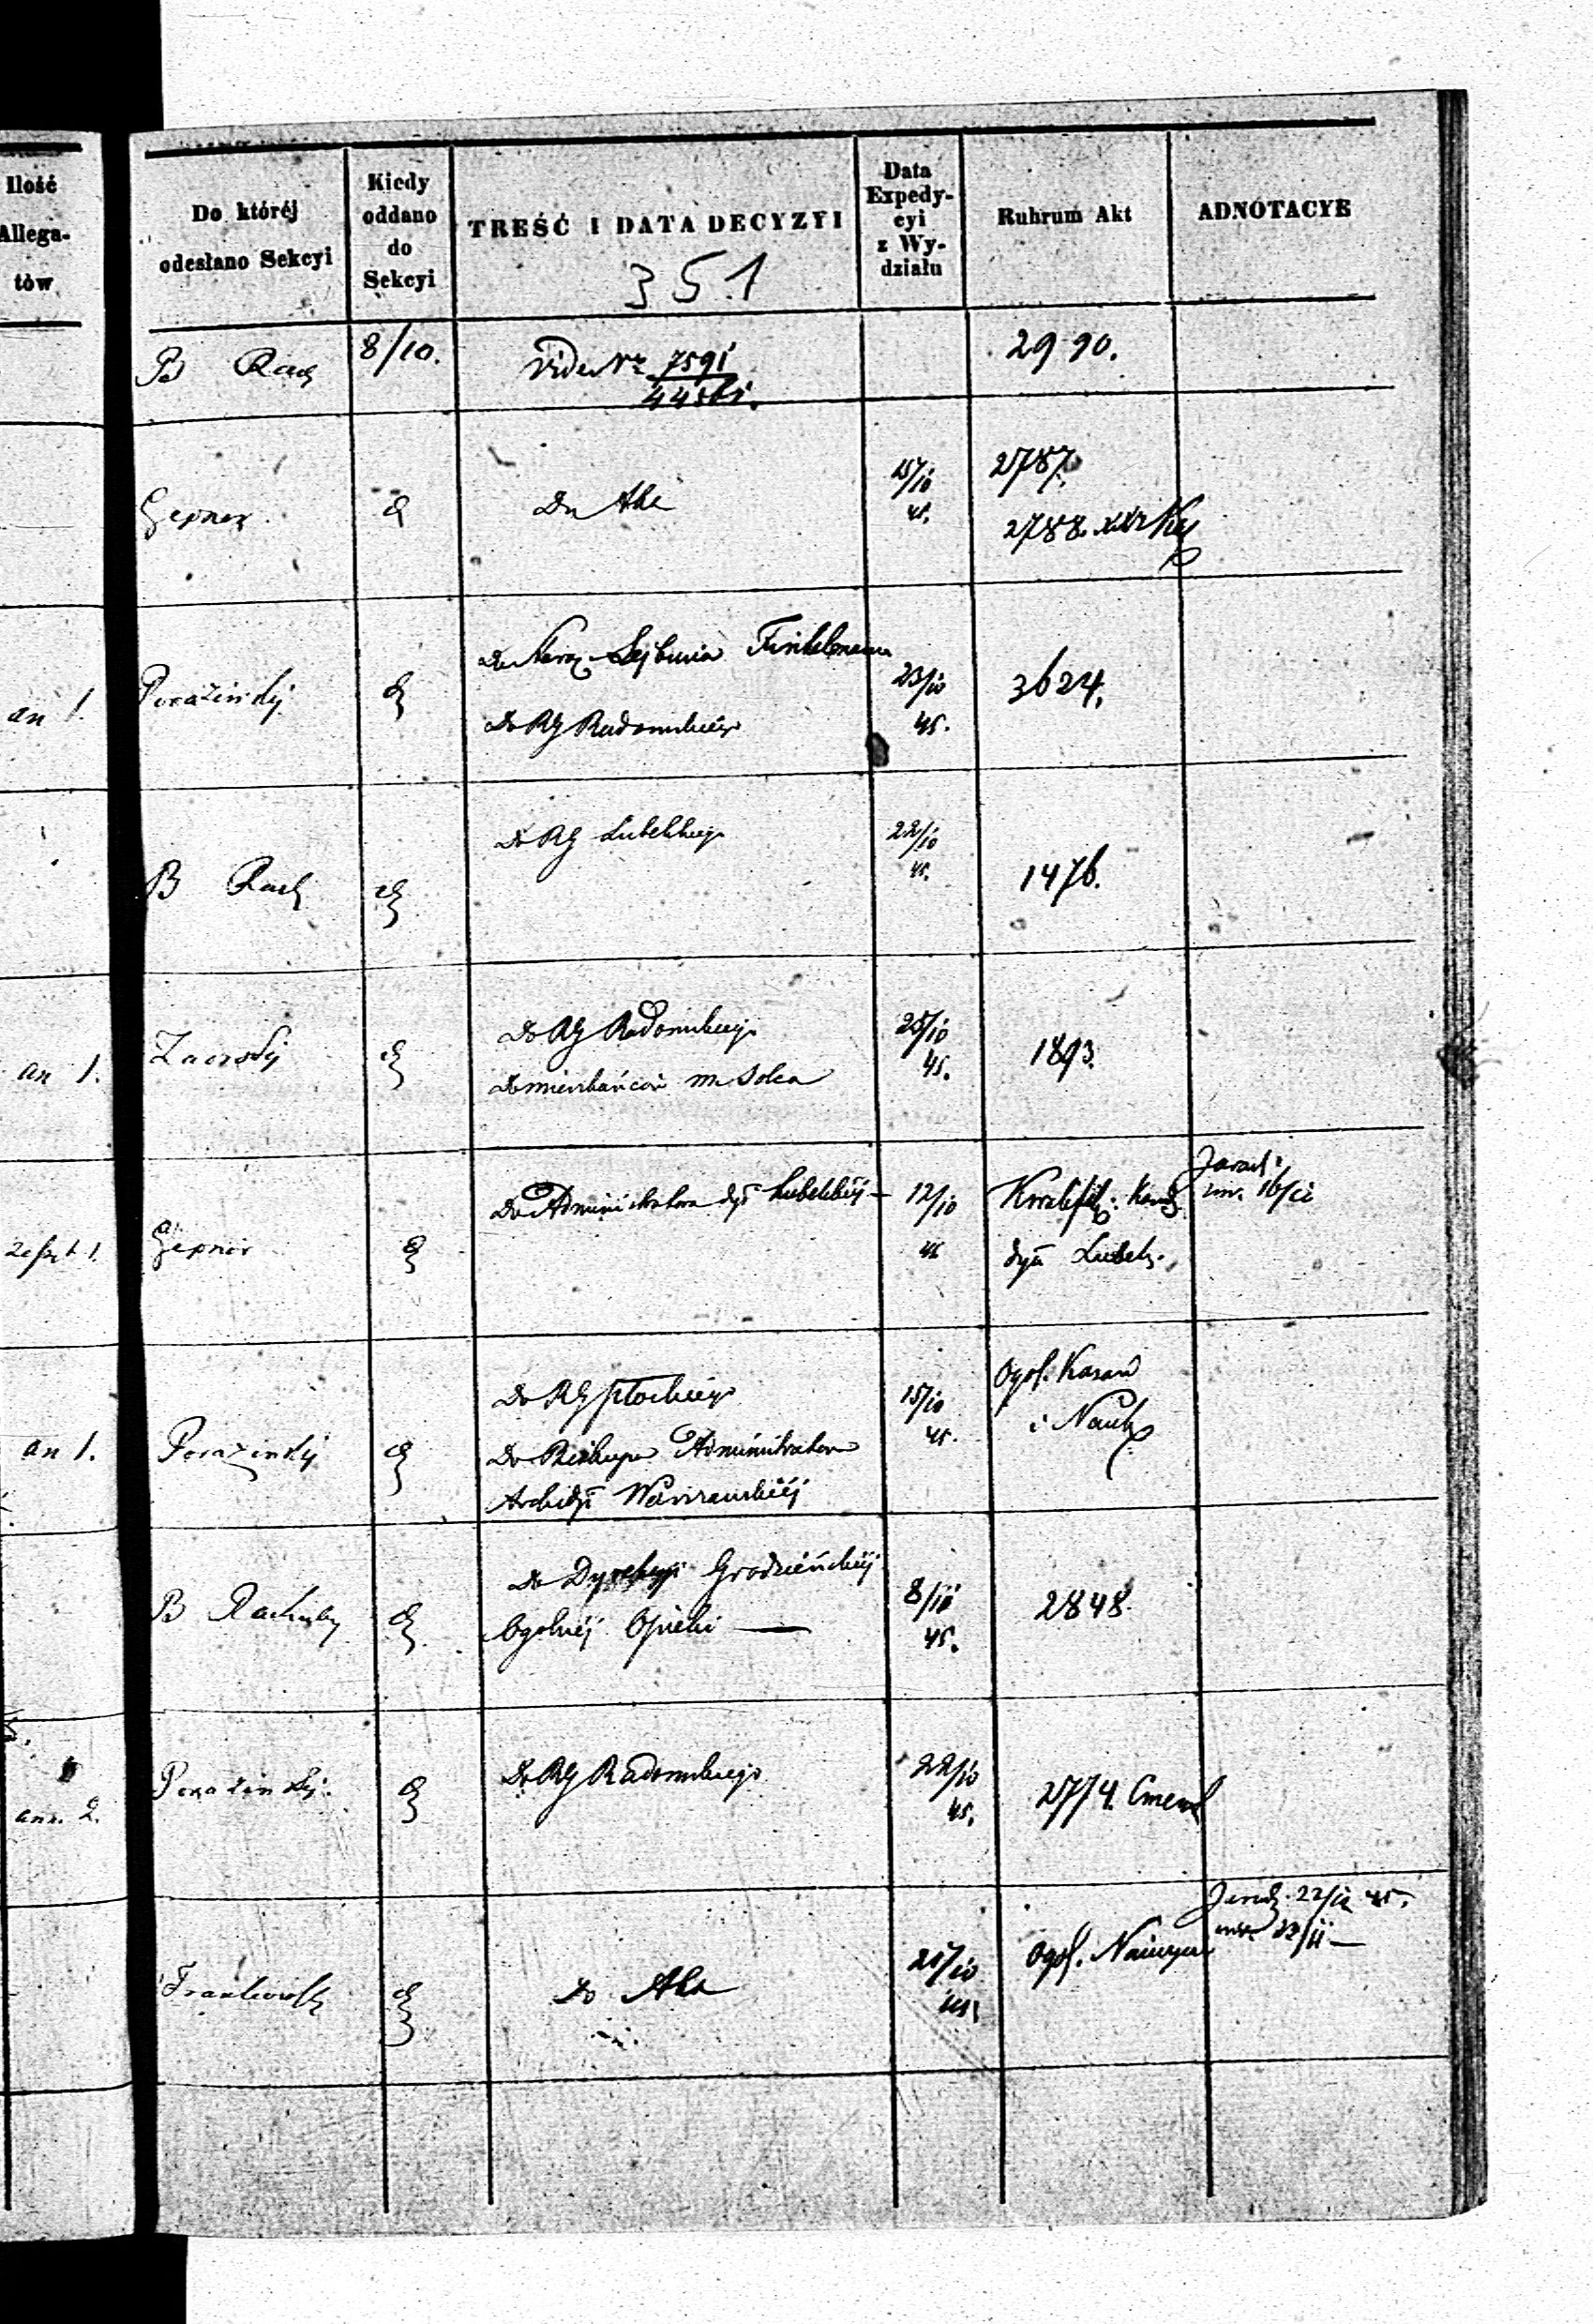 Ilość
Allega-
tów
Do któréj
odesłano Sekcyi
Kiedy
oddano
do
Sekcyi
TREŚĆ I DATA DECYZYI
351
Data
Expedy-
cyi
z Wy-
działu
Rubrum Akt
ADNOTACYE
B Rad
8/10.
Vide Nr 7591
2990.
Gepner
Do Akt
15/10
45.
2787.
2788.
an 1.
Poraziński
Lejbusia Finkelsmana
Do RG Radomskiego
23/10
45.
3624.
B Rad
Do RG Lubelskiego
22/10
45.
1476.
an 1.
Zawadzki
Do RG Radomskiego
Do mieszkańców m. Solca
25/10
45.
1893.
zeszt 1.
Gepner
Do Administratora dyi Lubelskiéj
12/10
45
Kwalifik: Kand
dyi Lubels.
16/12
an 1.
Poraziński
Do RG Płockiego
Do Biskupa Administratora
Archidyi Warszawskiéj
15/10
45.
Ogól. Kazań
i Nauk
B Rad
Do Dyrekcyi Grodzieńskiéj
Ogólnéj Opieki —
8/10
45.
2848.
ann. 2.
Poraziński
Do RG Radomskiego
22/10
45.
2774. Cment
Frankowski
Do Akt
21/10
45
Ogól.
22/12 45.
22/11 —